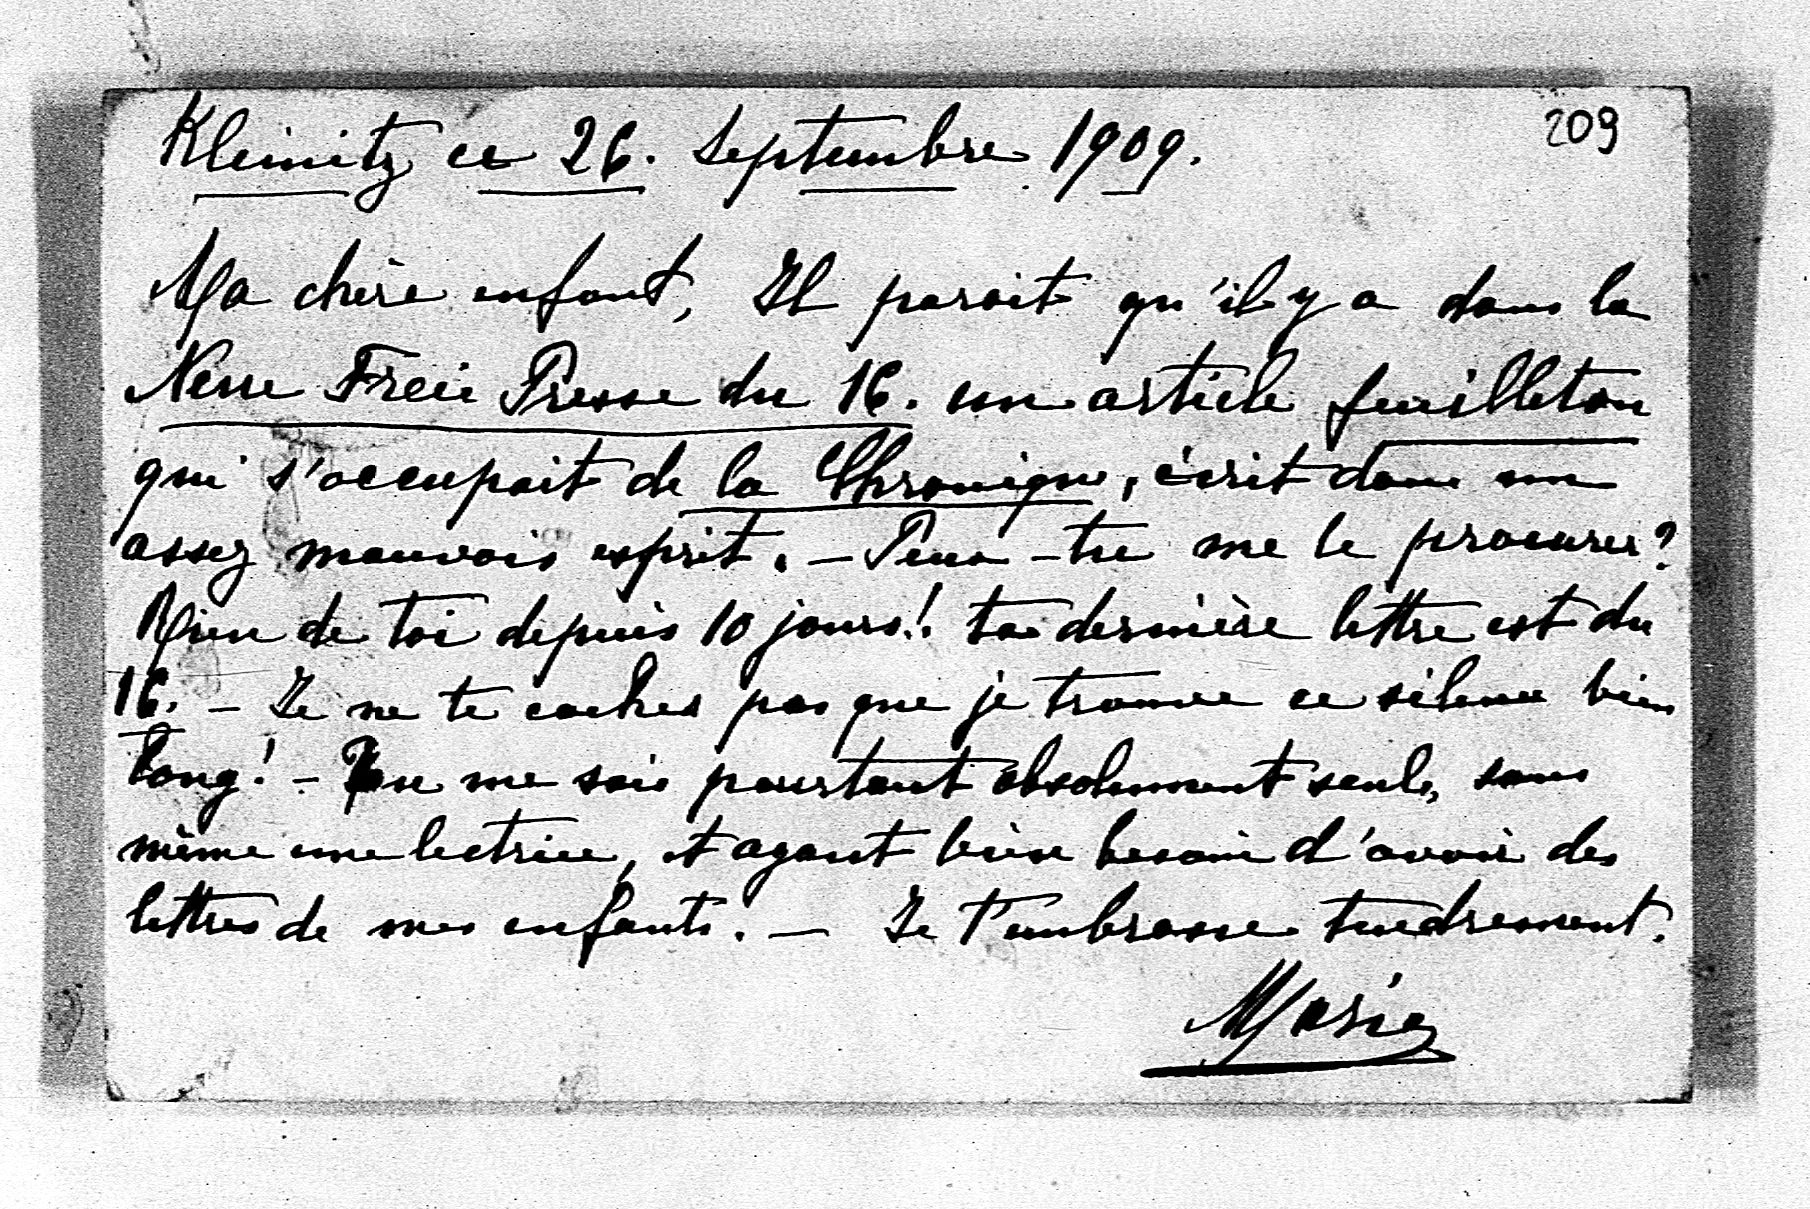 209
Kleinitz ce 26. Septembre 1909.
Ma chère enfant, Il parait qu'il y a dans la
Neue Freie Presse du 16. un article feuilleton
qui s'occupait de la Chronique, écrit dans un
assez mauvais esprit. – Peux-tu me le procurer?
Rien de toi depuis 10 jours! ta dernière lettre est du
16. – Je ne te caches pas que je trouve ce silence bien
long! – Tu me sais pourtant absolument seule, sans
même une lectrice, et ayant bien besoin d'avoir des
lettres de mes enfants. – Je t'embrasse tendrement.
Marie